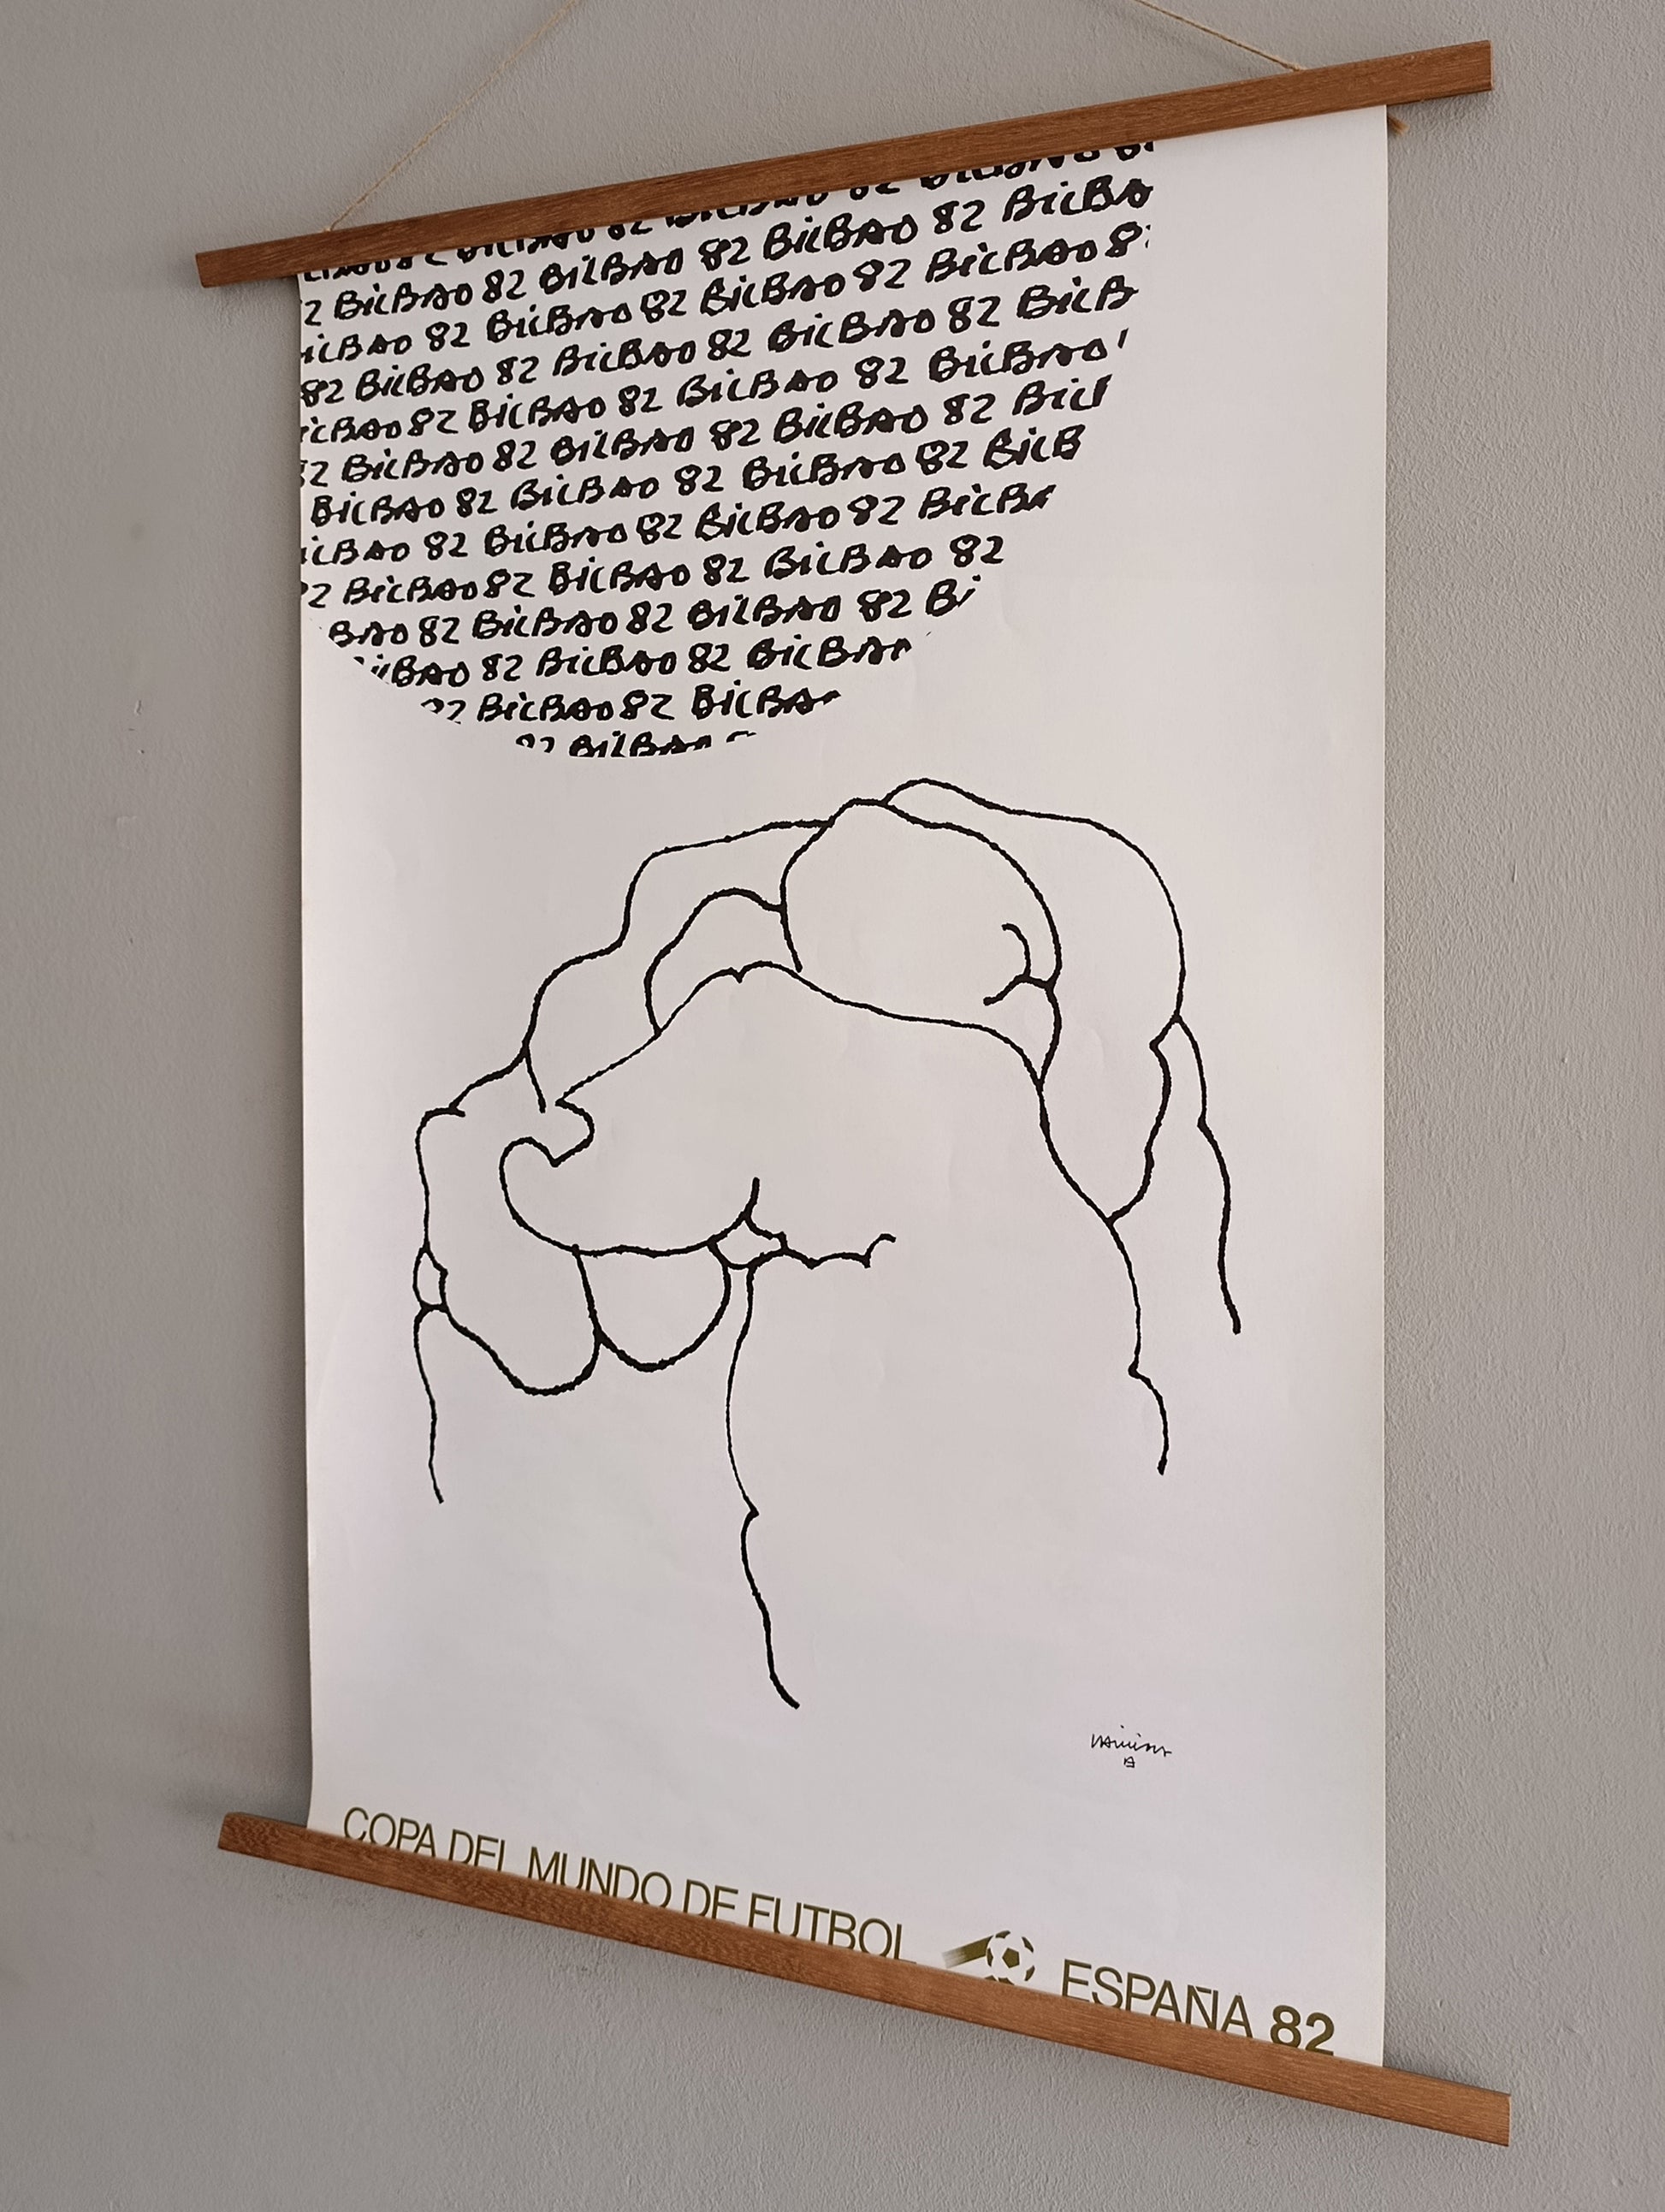 BiLBAO 82 BiLBAO 82 BiLBAO 82
2 BiLBAO 82 BiLBAO 82 BiLBAO 82 BiLBAO
iLBAO 82 BiLBAO 82 BiLBAO 82 BiLBAO 8
82 BiLBAO 82 BiLBAO 82 BiLBAO 82 BiLB
iLBAO 82 BiLBAO 82 BiLBAO 82 BiLBAO
2 BiLBAO 82 BiLBAO 82 BiLBAO 82 BiL
BiLBAO 82 BiLBAO 82 BiLBAO 82 BiLB
iLBAO 82 BiLBAO 82 BiLBAO 82 BiLBA
2 BiLBAO 82 BiLBAO 82 BiLBAO 82
BAO 82 BiLBAO 82 BiLBAO 82 Bi
iLBAO 82 BiLBAO 82 BiLBAO
82 BiLBAO 82 BiLBAO
82 BiLBAO
COPA DEL MUNDO DE FUTBOL ESPAÑA 82